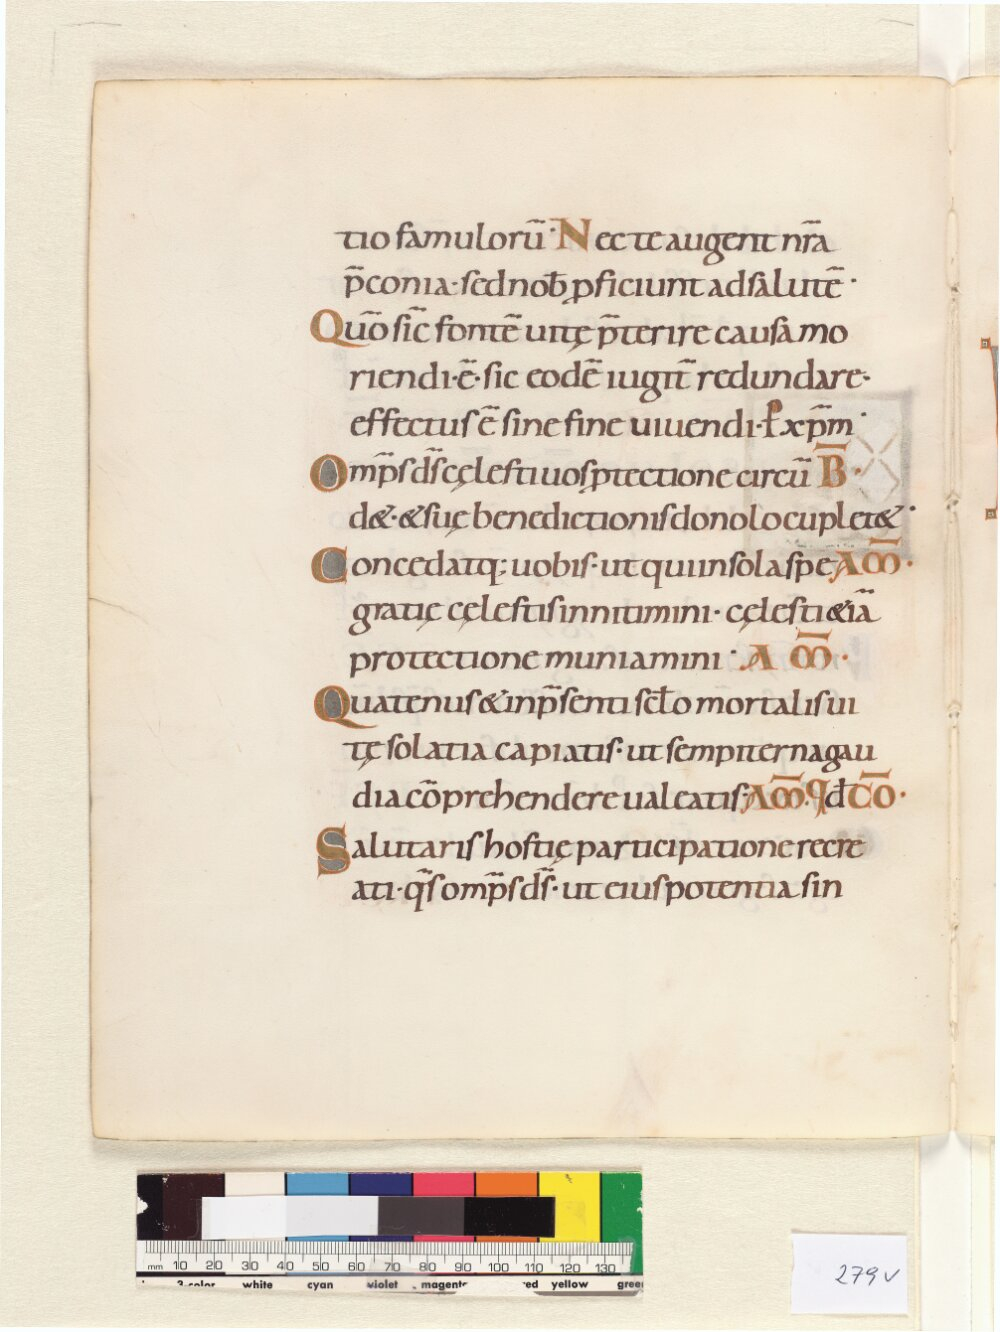 tio famulorū· Nec te augent nr̄a
p̄conia· sed nob̄ ꝓficiunt ad salutē·
Quō sic̄ fontē uitę p̄terire causa mo
riendi·ē· sic eodē iugit̄ redundare·
effectus ē sine fine uiuendi· P xp̄m·
Omp̄s ds̄ cęlesti uos ꝓtectione circū B̄·
d&·& suę benedictionis dono locuplet&·
Concedatq; uobis· ut qui in sola spe AM̄·
gratię cęlestis innitimini· cęlesti &iā
protectione muniamini· A M̄·
Quatenus & in p̄senti sc̄lo mortalis ui
tę solatia capiatis· ut sempiterna gau
dia cō̄prehendere ualeatis· AM̄· qd̄ CŌ·
Salutaris hostię participatione recre
ati· qs̄ omp̄s ds̄· ut eius potentia sin
mm 10 20 30 40 50 60 70 80 90 100 110 120 130
3-color white cyan violet magenta red yellow green
279v